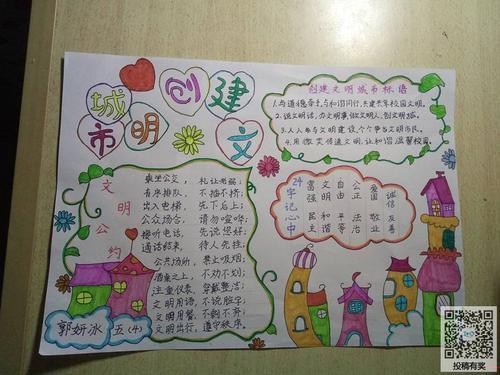 创建
文明
城市
创建文明城市标语
1.与道德牵手,与和谐同行,共建美年校园文明。
2.说文明话,办文明事,做文明人,创文明城。
3.人人参与文明建设,个个争当文明市民。
4.用微笑传递文明,让和谐温馨校园。
文明公约
乘坐公交, 礼让老弱;
有序排队, 不插不挤;
出入电梯, 先下后上;
公众场合, 请勿喧哗;
接听电话, 先说您好;
通话结束, 待人先挂;
公共场所, 禁止吸烟;
酒宴之上, 不劝不划;
注重仪表, 穿戴整洁;
文明用语, 不说脏字;
文明用餐, 不剩不弃;
文明出行, 遵守秩序。
24字记心中
富强 民主
文明 和谐
自由 平等
公正 法治
爱国 敬业
诚信 友善
郭妍冰 五(4)
投稿有奖